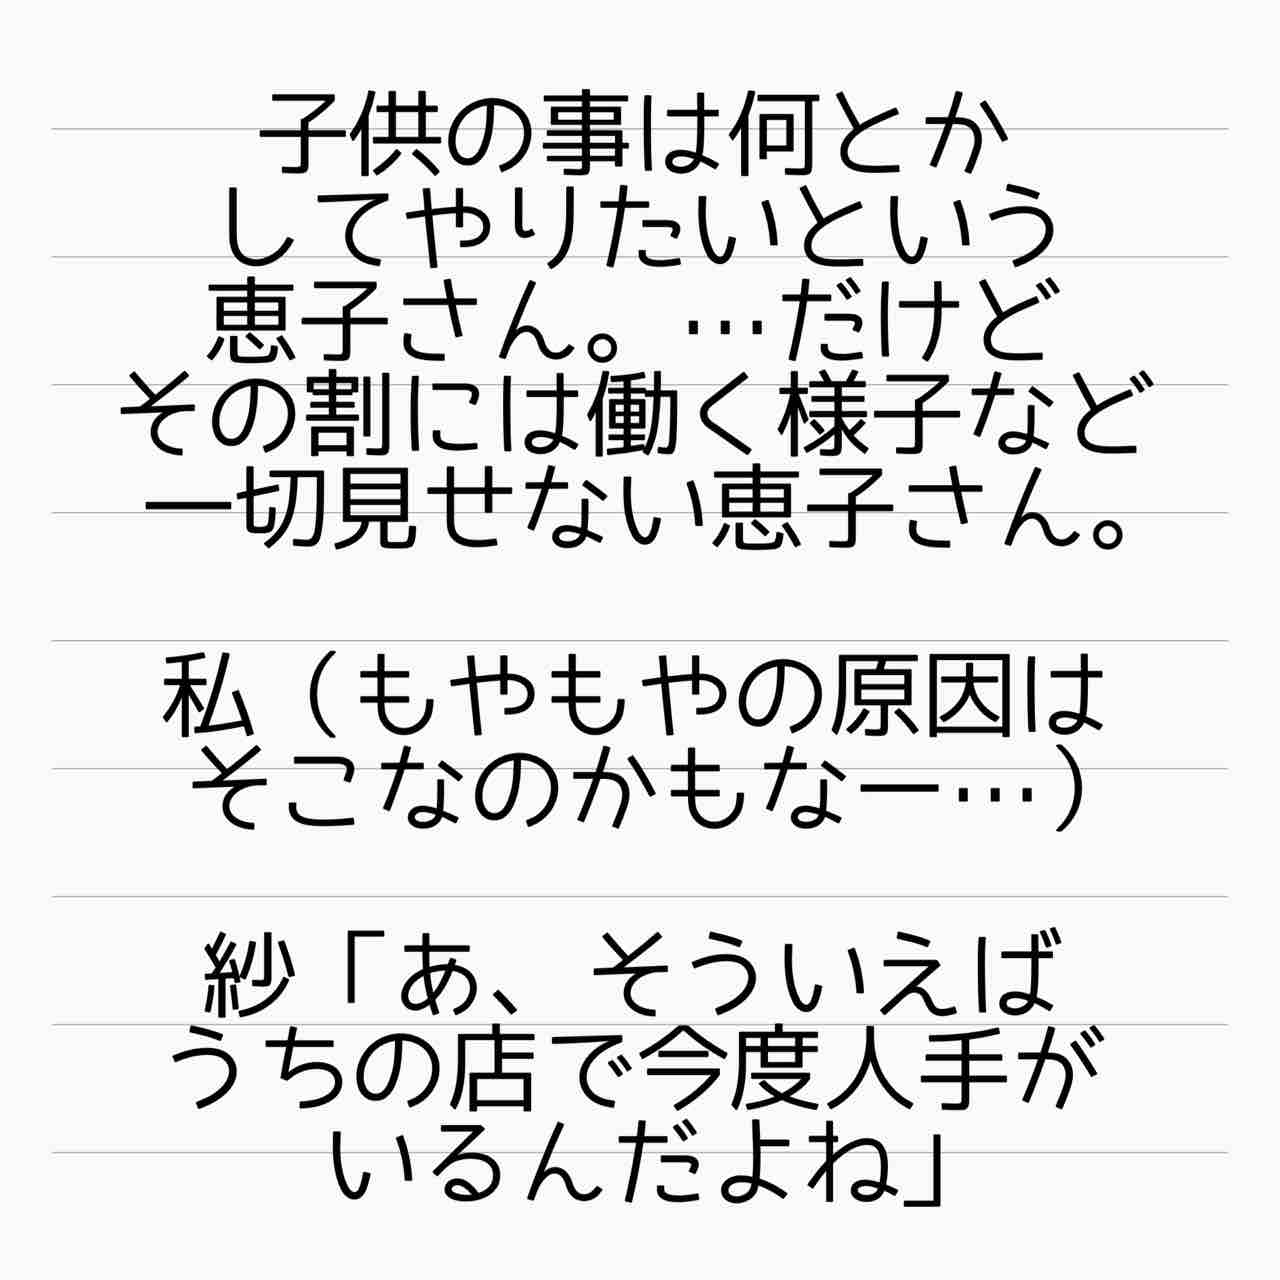 子供の事は何とか
してやりたいという
恵子さん。…だけど
その割には働く様子など
一切見せない恵子さん。
私（もやもやの原因は
そこなのかもなー…）
紗「あ、そういえば
うちの店で今度人手が
いるんだよね」